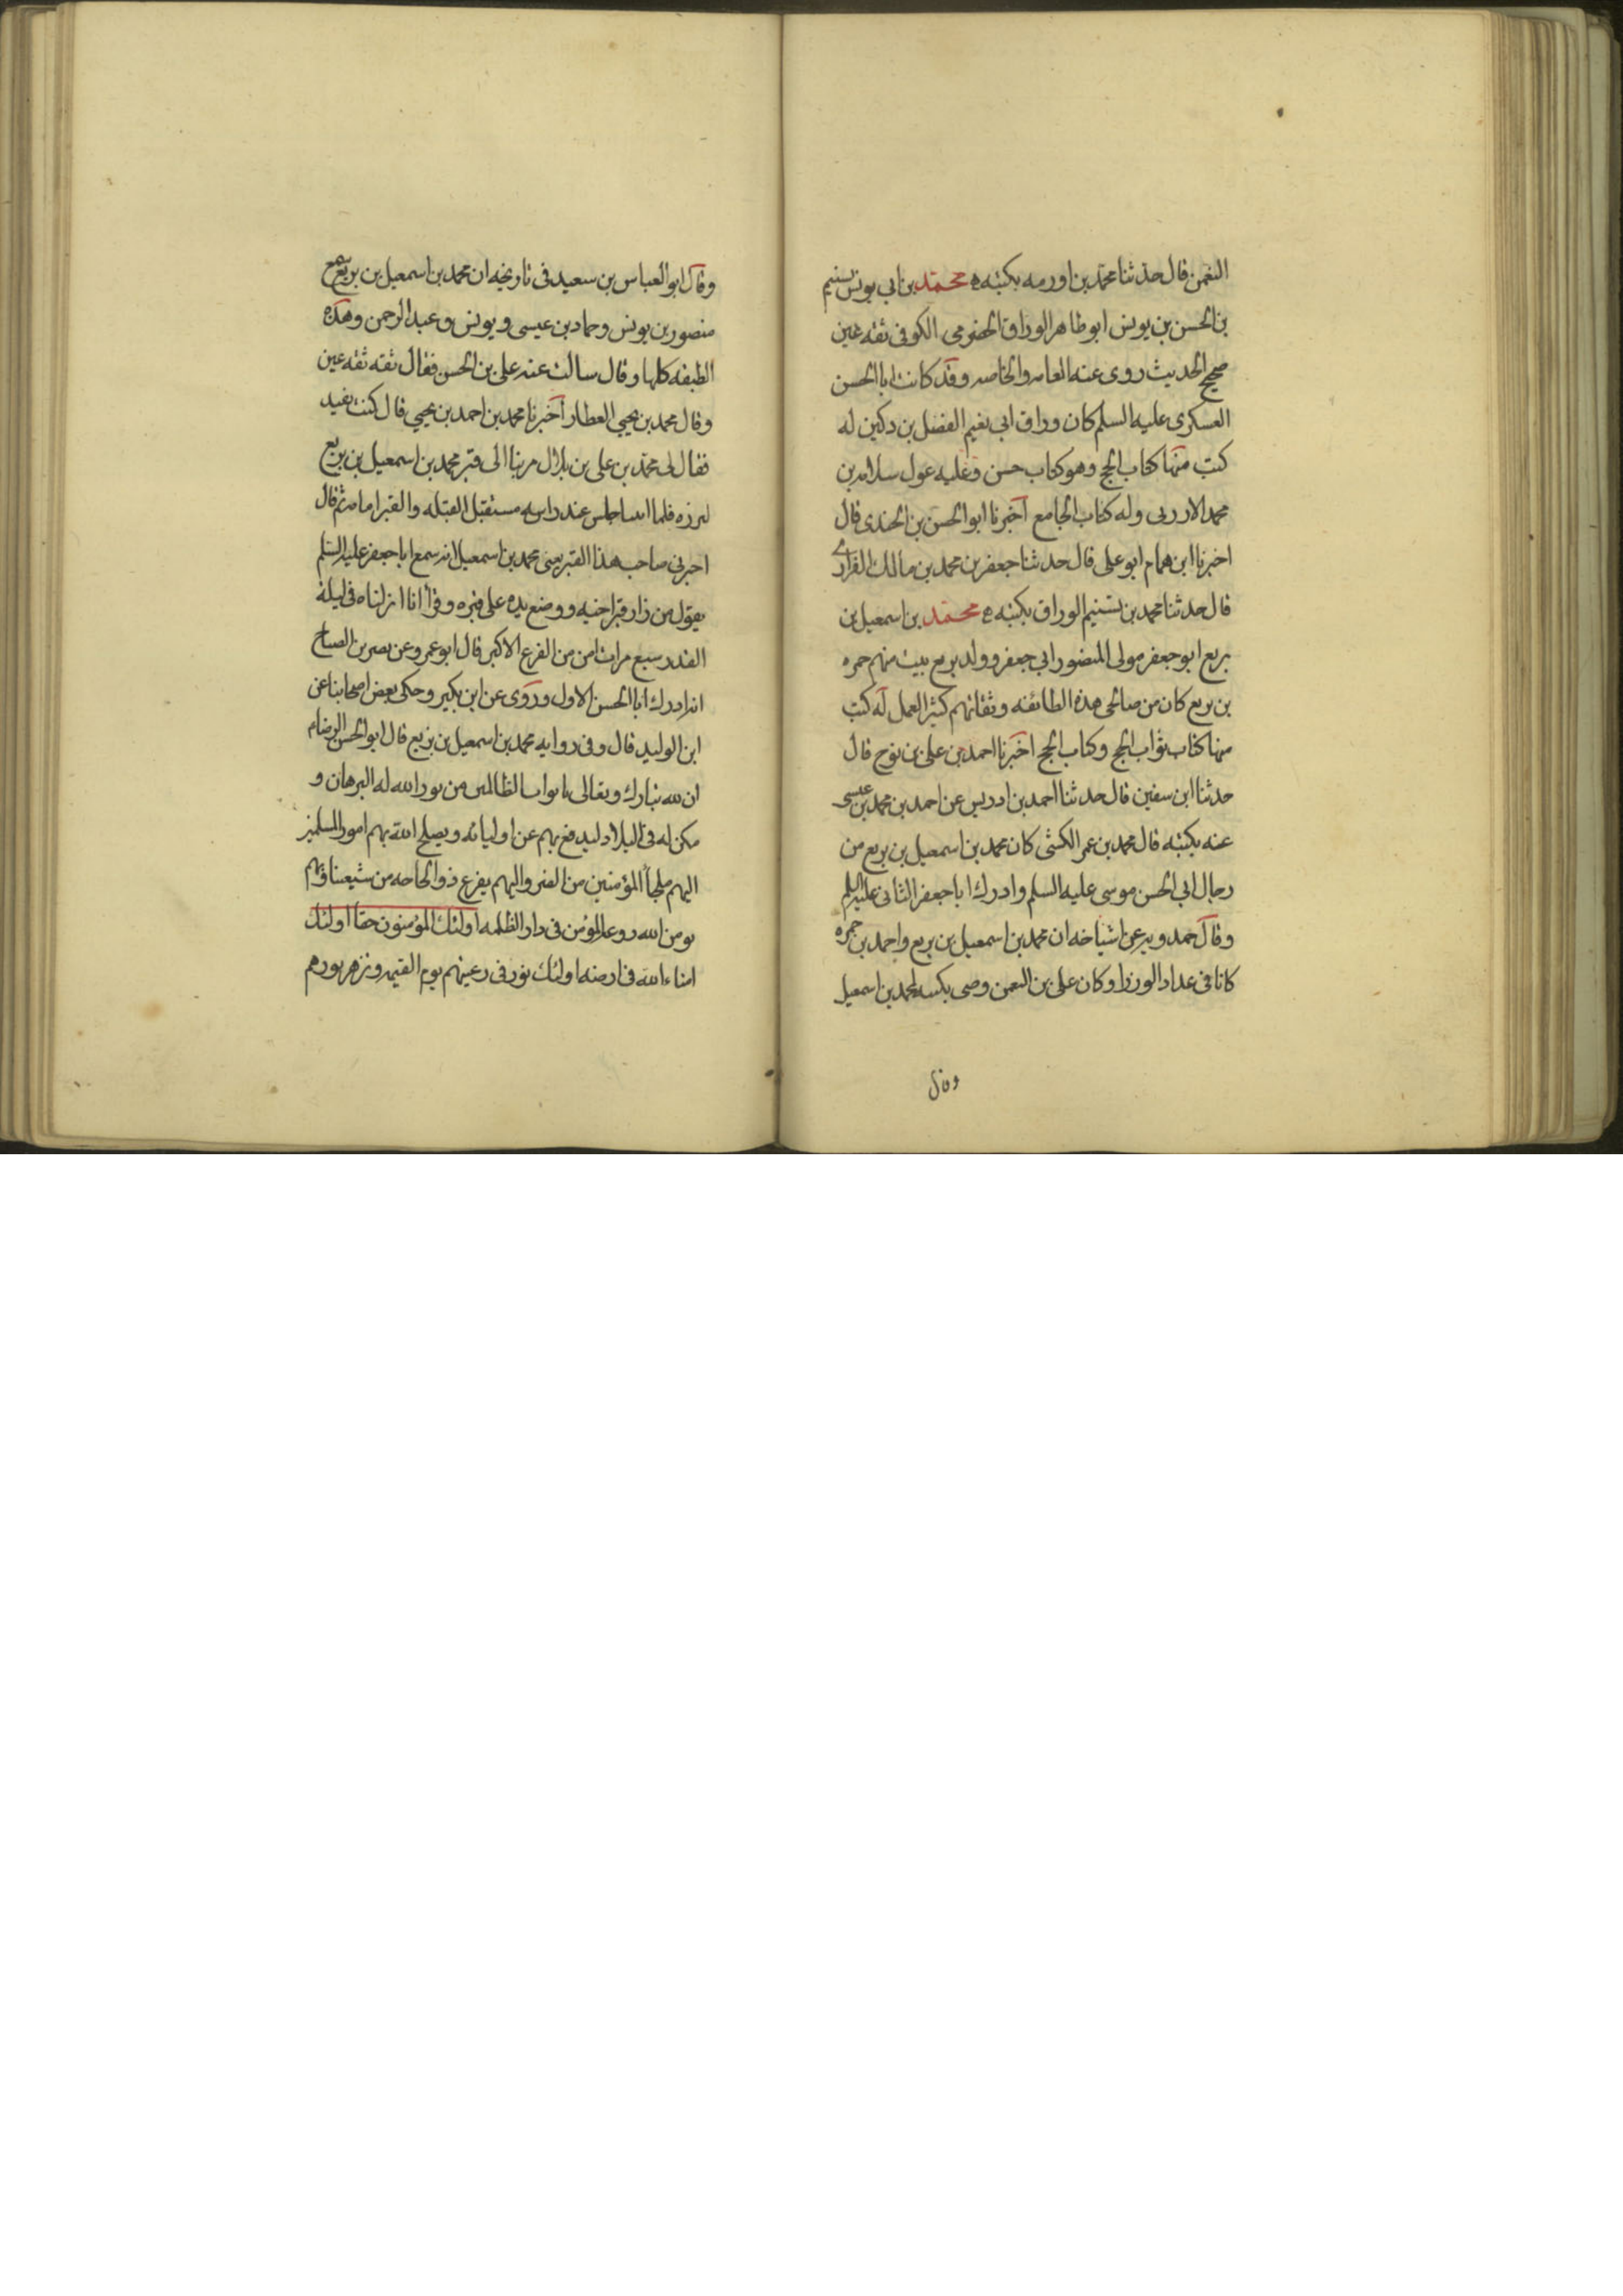 النعمن قال حدثنا محمد بن اورمه بكتبه ه محمد بن ابي يونس تسنيم
بن الحسن بن يونس ابو طاهر الوراق الحضرمي الكوفي ثقه عين
صحيح الحديث روى عنه العامه والخاصه وقد كاتب ابا الحسن
العسكرى عليه السلم كان وراق ابي نعيم الفضل بن دكين له
كتب منها كتاب الحج وهو كتاب حسن وعليه عول سلامه بن
محمد الارزنى وله كتاب الجامع اخبرنا ابو الحسن بن الجندى قال
اخبرنا ابن همام ابو على قال حدثنا جعفر بن محمد بن مالك الفزارى
قال حدثنا محمد بن تسنيم الوراق بكتبه ه محمد بن اسمعيل بن
بزيع ابو جعفر مولى المنصور ابي جعفر وولد بزيع بيت منهم حمزه
بن بزيع كان من صالحى هذه الطائفه وثقاتهم كثير العمل له كتب
منها كتاب ثواب الحج وكتاب الحج اخبرنا احمد بن على بن نوح قال
حدثنا ابن سفين قال حدثنا احمد بن ادريس عن احمد بن محمد بن عيسى
عنه بكتبه قال محمد بن عمر الكشى كان محمد بن اسمعيل بن بزيع من
رجال ابي الحسن موسى عليه السلم وادرك ابا جعفر الثانى عليه السلم
وقال حمدويه عن اشياخه ان محمد بن اسمعيل بن بزيع واحمد بن حمزه
كانا فى عداد الوزرا وكان على بن النعمن وصى بكتبه لمحمد بن اسمعيل
وقال
وقال ابو العباس بن سعيد فى تاريخه ان محمد بن اسمعيل بن بزيع سمع
منصور بن يونس وحماد بن عيسى ويونس وعبد الرحمن وهذه
الطبقه كلها وقال سالت عنه على بن الحسن فقال ثقه ثقه عين
وقال محمد بن يحيى العطار اخبرنا محمد بن احمد بن يحيى قال كنت بفيد
فقال لى محمد بن على بن بلال مر بنا الى قبر محمد بن اسمعيل بن بزيع
لنزره فلما اتينا جلس عند راسه مستقبل القبله والقبر امامه ثم قال
اخبرنى صاحب هذا القبر يعنى محمد بن اسمعيل انه سمع ابا جعفر عليه السلم
يقول من زار قبر اخيه ووضع يده على قبره وقرا انا انزلناه فى ليلة
القدر سبع مرات امن من الفزع الاكبر قال ابو عمرو عن نصر بن الصباح
انه ادرك ابا الحسن الاول وروى عن ابن بكير وحكى بعض اصحابنا عن
ابن الوليد قال وفى روايه محمد بن اسمعيل بن بزيع قال ابو الحسن الرضا م
ان لله تبارك وتعالى بابواب الظالمين من نور الله له البرهان و
مكن له فى البلاد ليدفع بهم عن اوليائه ويصلح الله بهم امور المسلمين
اليهم ملجا المؤمنين من الضر واليهم يفزع ذو الحاجه من شيعتنا وبهم
يومن الله روعه المؤمن فى دار الظلمه اولئك المؤمنون حقا اولئك
امناء الله فى ارضه اولئك نور فى رعيتهم يوم القيمه ويزهر نورهم